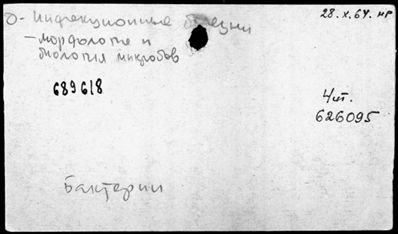 О - Инфекционные болезни
28.X.64. нр
- морфология и
биология микробов
689618
4 шт.
626095
Бактерии